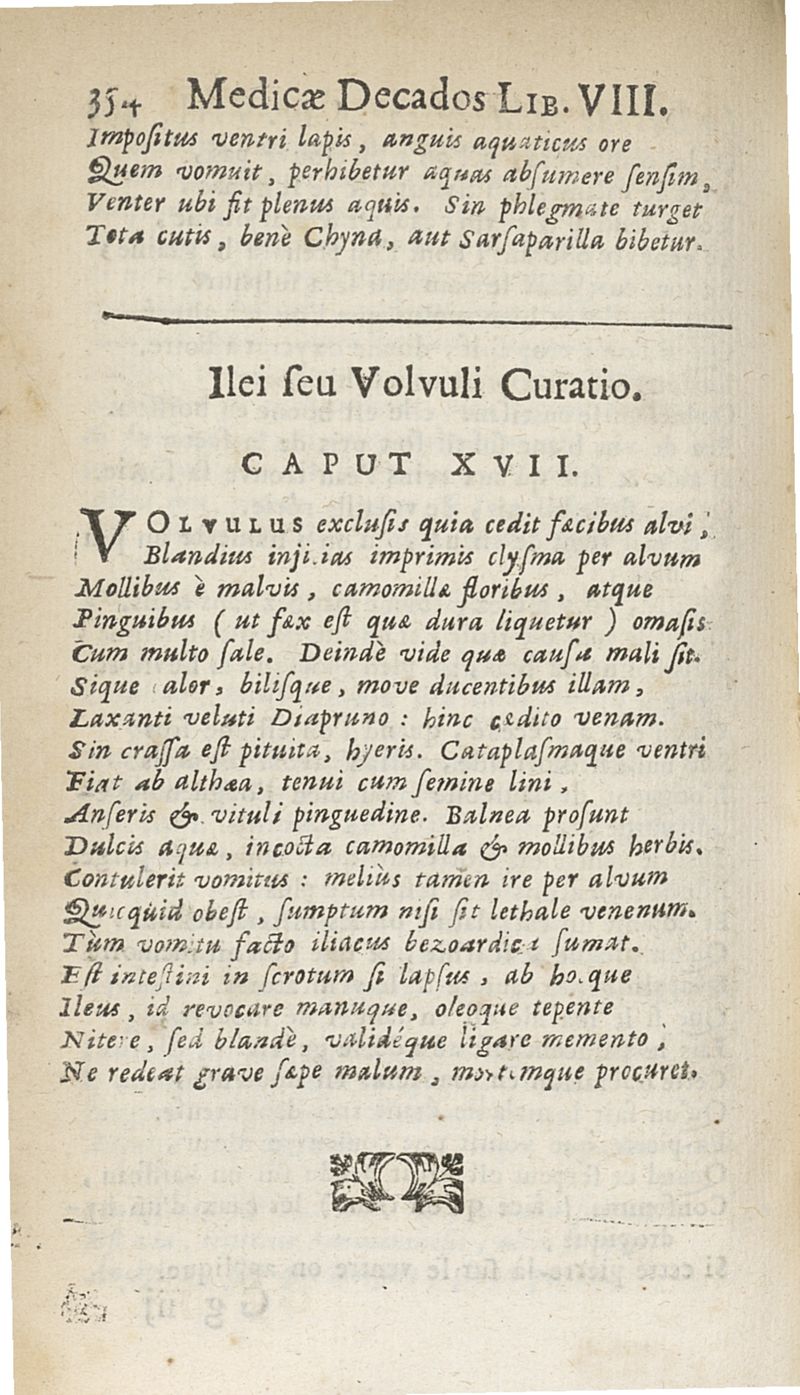 354 Medicæ Decados LIB. VIII.
Impoſitus ventri lapis, anguis aquaticus ore
Quem vomuit, perhibetur aquas abſumere ſenſim,
Venter ubi fit plenus aquis. Sin phlegmate turget
Tota cutis, benè Chyna, aut Sarſaparilla bibetur.
Ilei ſeu Volvuli Curatio.
CAPUT XVII.
VOLVULUS excluſis quia cedit fæcibus alvi,
Blandius injicias imprimis clyſma per alvum
Mollibus è malvis, camomillæ floribus, atque
Pinguibus ( ut fæx eſt quæ dura liquetur ) omaſis
Cum multo ſale. Deindè vide quæ cauſa mali ſit.
Sique alor, biliſque, move ducentibus illam,
Laxanti veluti Diapruno : hinc cædito venam.
Sin craſſa eſt pituita, hyeris. Cataplaſmaque ventri
Fiat ab althæa, tenui cum ſemine lini,
Anſeris & vituli pinguedine. Balnea proſunt
Dulcis aquæ, incocta camomilla & mollibus herbis.
Contulerit vomitus : meliùs tamen ire per alvum
Quicquid obeſt, ſumptum niſi ſit lethale venenum.
Tùm vomitu facto iliacus bezoardica ſumat.
Eſt inteſtini in ſcrotum ſi lapſus, ab hocque
Ileus, id revocare manuque, oleoque tepente
Nitere, ſed blandè, validéque ligare memento,
Ne redeat grave ſæpe malum, mortemque procuret.